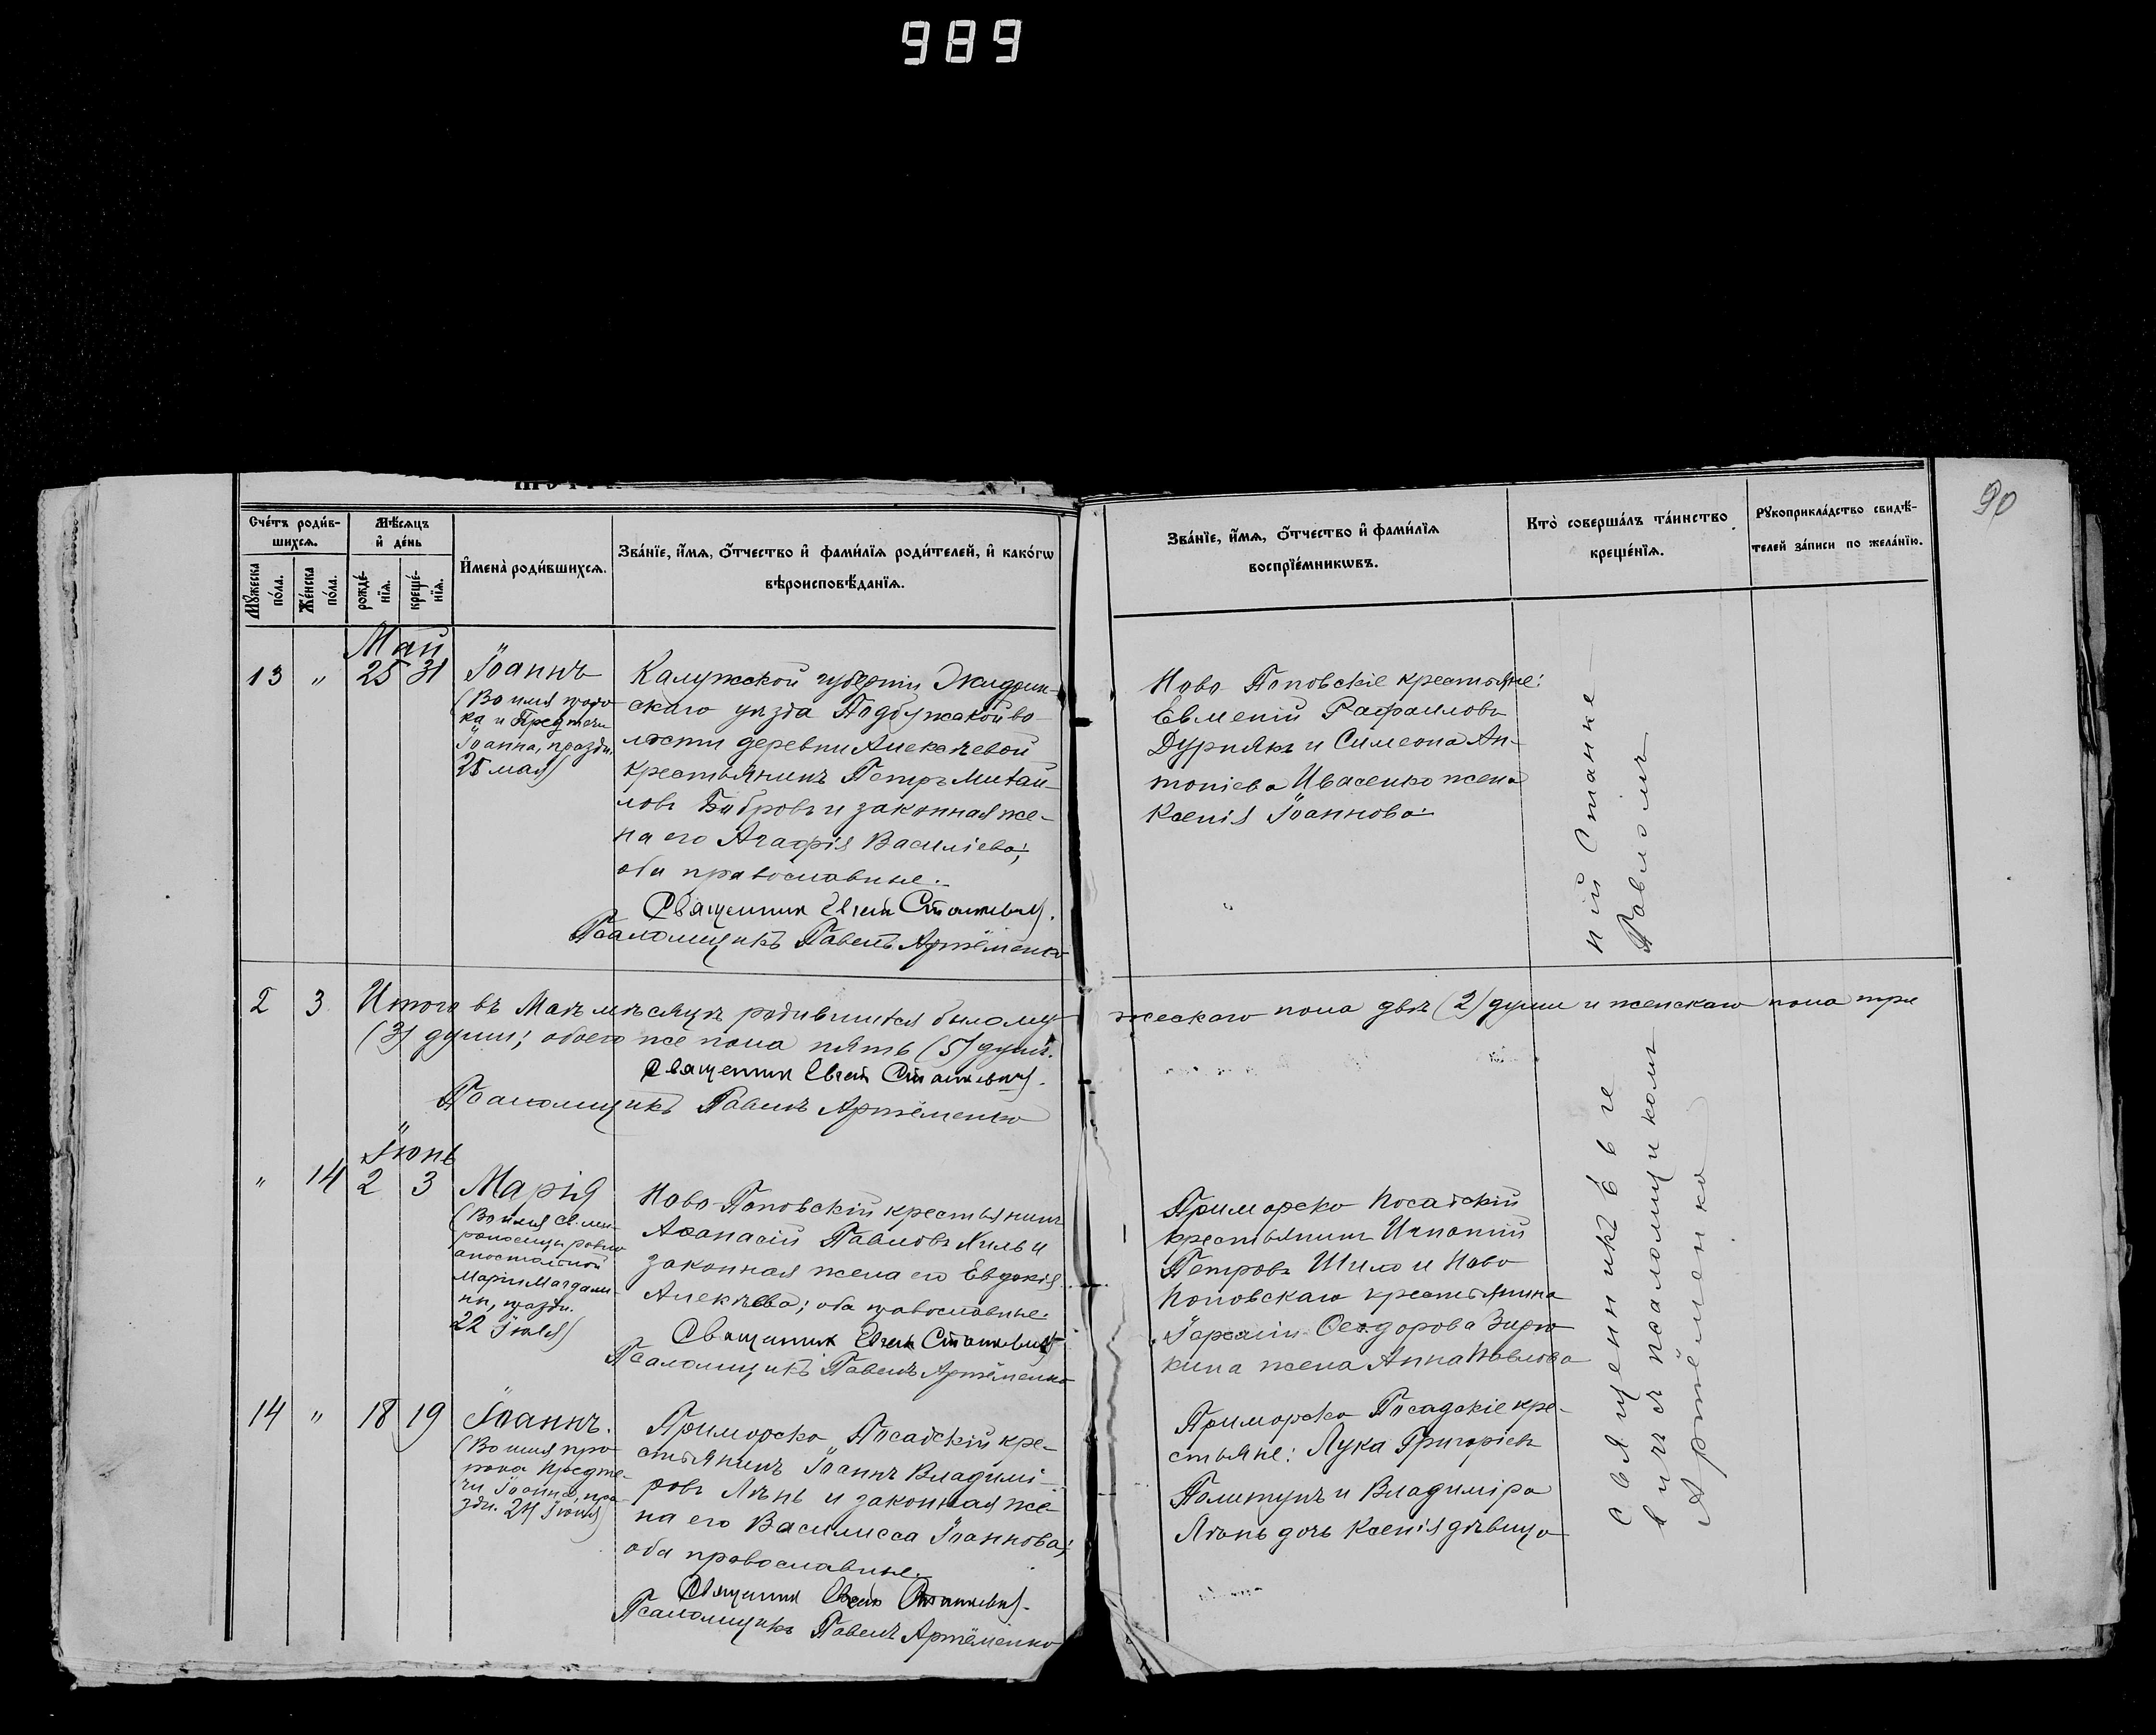 989
90
Счетъ родив-
шихся.
Мѣсяцъ
и день
Мужеска
пола.
Женска
пола.
рожде-
нія.
креще-
нія.
Имена родившихся.
Званіе, имя, отчество и фамилія родителей, и какогѡ
вѣроисповѣданія.
Званіе, имя, отчество и фамилія
воспріемникѡвъ.
Кто совершалъ таинство
крещенія.
Рукоприкладство свидѣ-
телей записи по желанію.
Май
13 " 25 31
Іоаннъ
(Во имя проро-
ка и Предтечи
Іоанна, праздн.
25 мая)
Калужской губерніи Жидрин-
скаго уѣзда Подбужской во-
лости деревни Алексѣевой
крестьянинъ Петръ Михаи-
ловъ Бобровъ и законная же-
на его Агафія Василіева;
оба православные.
Священник Евген Станкевич.
Псаломщикъ Павелъ Артёменко
Ново-Поповскіе крестьяне:
Евменій Рафаиловъ
Дурнякъ и Симеона Ан-
тоніева Ивасенко жена
Ксенія Іоаннова.
2 3 Итого въ Маѣ мѣсяцѣ родившихся было му-
жескаго пола двѣ (2) души и женскаго пола три
(3) души; обоего же пола пять (5) душъ.
Священник Евген Станкевич.
Псаломщикъ Павелъ Артёменко
Іюнь
" 14 2 3
Марія
(Во имя св. ми-
роносицы равно
апостольной
Маріи Магдали-
ны, праздн.
22 Іюля)
Ново-Поповскій крестьянинъ
Аѳанасій Павловъ Хиль и
законная жена его Евдокія
Алексѣева; оба православные.
Священник Евген Станкевич
Псаломщикъ Павелъ Артёменко
Приморско-Посадскій
крестьянинъ Игнатій
Петровъ Шило и Ново-
Поповскаго крестьянина
Герасим Ѳеодорова Зирю
кина жена Анна Павлова
14 " 18 19
Іоаннъ.
(Во имя про-
рока Предте-
чи Іоанна, пра-
здн. 24 Іюня)
Приморско-Посадскій кре-
стьянинъ Іоаннъ Владимі-
ровъ Лѣнь и законная же-
на его Василисса Іоаннова;
оба православные.
Священник Евген Станкевич.
Псаломщикъ Павелъ Артёменко
Приморско-Посадскіе кре-
стьяне: Лука Григоріевъ
Политунъ и Владиміра
дочь Ксенія дѣвица
Священникъ Евге
ній Станке
вичъ съ псаломщикомъ
Павломъ
Артёменко